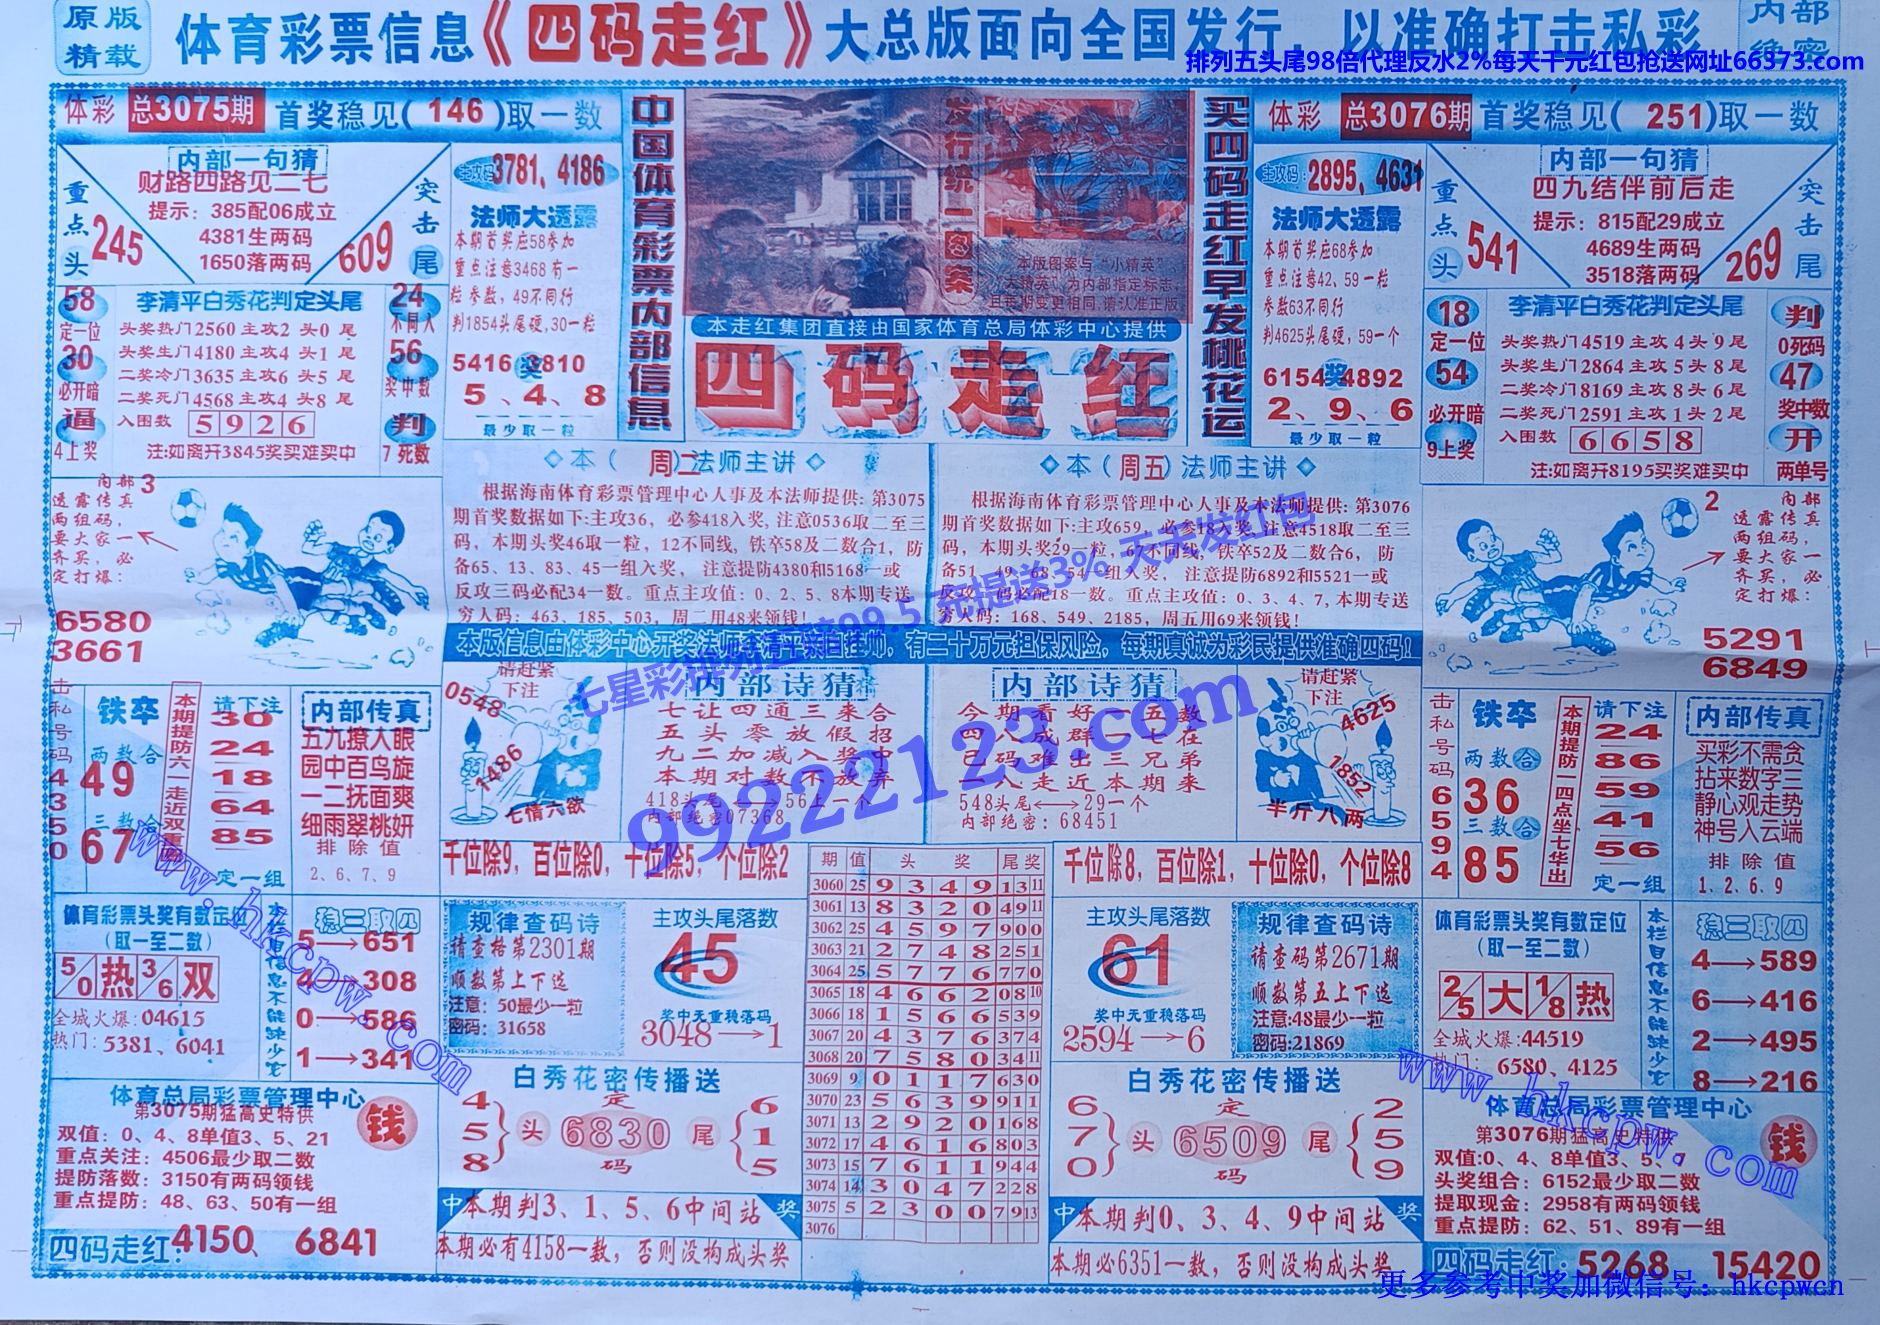 原版
精载
体育彩票信息《四码走红》大总版面向全国发行，以准确打击私彩
内部
绝密
排列五头尾98倍代理反水2%每天千元红包抢送网址66373.com
体彩 总3075期 首奖稳见( 146 )取一数
内部一句猜
财路四路见二七
提示：385配06成立
4381生两码
1650落两码
重点头
245
突击尾
609
主攻码
3781、4186
法师大透露
本期首奖应58参加
重点注意3468有一
粒参数，49不同行
判1854头尾硬,30一粒
5416 奖 3810
5、4、8
最少取一粒
58
定一位
30
必开暗
逼
4上奖
李清平白秀花判定头尾
头奖热门2560主攻2 头0 尾
头奖生门4180主攻4 头1 尾
二奖冷门3635主攻6 头5 尾
二奖死门4568主攻4 头8 尾
入围数 5926
注:如离开3845奖买难买中
24
不同人
56
奖中数
判
7死数
中国体育彩票内部信息
发行统一图案
本版图案与“小精英”
大精英”为内部指定标志，
且每期变更相同,请认准正版
本走红集团直接由国家体育总局体彩中心提供
四码走红
买四码走红早发桃花运
体彩 总3076期 首奖稳见( 251)取一数
主攻码:
2895、4631
法师大透露
本期首奖应68参加
重点注意42、59一粒
参数63不同行
判4625头尾硬，59一个
6154 奖 4892
2、9、6
最少取一粒
内部一句猜
四九结伴前后走
提示：815配29成立
4689生两码
3518落两码
重点头
541
突击尾
269
18
定一位
54
必开暗
9上奖
李清平白秀花判定头尾
头奖热门4519主攻4头9尾
头奖生门2864主攻5头8尾
二奖冷门8169主攻8头6尾
二奖死门2591主攻1头2尾
入围数 6658
注:如离开8195买奖难买中
判
0死码
47
奖中数
开
两单号
内部3
透露传真
两组码，
要大家一
齐买，必
定打爆：
6580
3661
◇本（ 周二）法师主讲◇
根据海南体育彩票管理中心人事及本法师提供: 第3075
期首奖数据如下:主攻36，必参418入奖, 注意0536取二至三
码，本期头奖46取一粒，12不同线, 铁卒58及二数合1, 防
备65、13、83、45一组入奖， 注意提防4380和5168一或
反攻三码必配34一数。重点主攻值: 0、2、5、8本期专送
穷人码: 463、185、503，周二用48来领钱!
◇本（周五）法师主讲◇
根据海南体育彩票管理中心人事及本法师提供: 第3076
期首奖数据如下:主攻659，必参18入奖, 注意4518取二至三
码，本期头奖29一粒，67不同线, 铁卒52及二数合6, 防
备51、49、68、54一组入奖， 注意提防6892和5521一或
反攻二码必配18一数。重点主攻值: 0、3、4、7,本期专送
穷人码: 168、549、2185，周五用69来领钱!
2 内部
透露传真
两组码，
要大家一
齐买，必
定打爆：
5291
6849
本版信息由体彩中心开奖法师李清平亲自挂帅，有二十万元担保风险，每期真诚为彩民提供准确四码!
99222123.com
击私号码43550
铁卒
两数合
49
三数合
67
本期提防六一走近双重四
请下注
30
24
18
64
85
定一组
内部传真
五九撩人眼
园中百鸟旋
一二抚面爽
细雨翠桃妍
排除值
2、6、7、9
请赶紧
下注
0548
1486
七情六欲
内部诗猜
七让四通三来合
五头零放假招
九二加减入奖中
本期对数不放弃
418头尾⟷56上一个
内部绝密07368
内部诗猜
今期看好一五数
四八成群一七在
己码难出三兄弟
一八走近本期来
548头尾⟷29一个
内部绝密: 68451
请赶紧
下注
4625
1852
半斤八两
击私号码65594
铁卒
两数合
36
三数合
85
本期提防一四点坐七华出
请下注
24
86
59
41
56
定一组
内部传真
买彩不需贪
拈来数字三
静心观走势
神号入云端
排除值
1、2、6、9
千位除9，百位除0，十位除5，个位除2
千位除8，百位除1，十位除0，个位除8
期 值 头奖 尾奖
3060 25 9 3 4 9 13 11
3061 13 8 3 2 0 49 11
3062 25 4 5 9 7 900
3063 21 2 7 4 8 251
3064 25 5 7 7 6 770
3065 18 4 6 6 2 08 10
3066 18 1 5 6 6 539
3067 20 4 3 7 6 374
3068 20 7 5 8 0 34 11
3069 9 0 1 1 7 630
3070 23 5 6 3 9 911
3071 13 2 9 2 0 168
3072 17 4 6 1 6 803
3073 15 7 6 1 1 944
3074 14 3 0 4 7 228
3075 5 2 3 0 0 79 13
3076
体育彩票头奖有数定位
（取一至二数）
5/0 热 3/6 双
全城火爆: 04615
热门: 5381、6041
本栏目信息不能缺少它
稳三取四
5→651
4→308
0→586
1→341
规律查码诗
请查格第2301期
顺数第上下选
注意：50最少一粒
密码：31658
主攻头尾落数
45
奖中无重稳落码
3048→1
主攻头尾落数
61
奖中无重稳落码
2594→6
规律查码诗
请查码第2671期
顺数第五上下选
注意:48最少一粒
密码:21869
体育彩票头奖有数定位
（取一至二数）
2/5 大 1/8 热
全城火爆:44519
热门: 6580、4125
本栏目信息不能缺少它
稳三取四
4→589
6→416
2→495
8→216
体育总局彩票管理中心
第3075期猛高史特供
钱
双值: 0、4、8单值3、5、21
重点关注: 4506最少取二数
提防落数: 3150有两码领钱
重点提防: 48、63、50有一组
四码走红: 4150、 6841
白秀花密传播送
4 5 8 头 定 6830 码 尾 6 1 5
中 本期判3、1、5、6中间站 奖
本期必有4158一数，否则没构成头奖
白秀花密传播送
6 7 0 头 定 6509 码 尾 2 5 9
中 本期判0、3、4、9中间站 奖
本期必6351一数，否则没构成头奖
体育总局彩票管理中心
第3076期猛高史特供
钱
双值:0、4、8单值3、5、7
头奖组合: 6152最少取二数
提取现金: 2958有两码领钱
重点提防: 62、51、89有一组
四码走红: 5268 15420
www.hkcpw.com
www.hkcpw.com
更多参考中奖加微信号: hkcpwcn